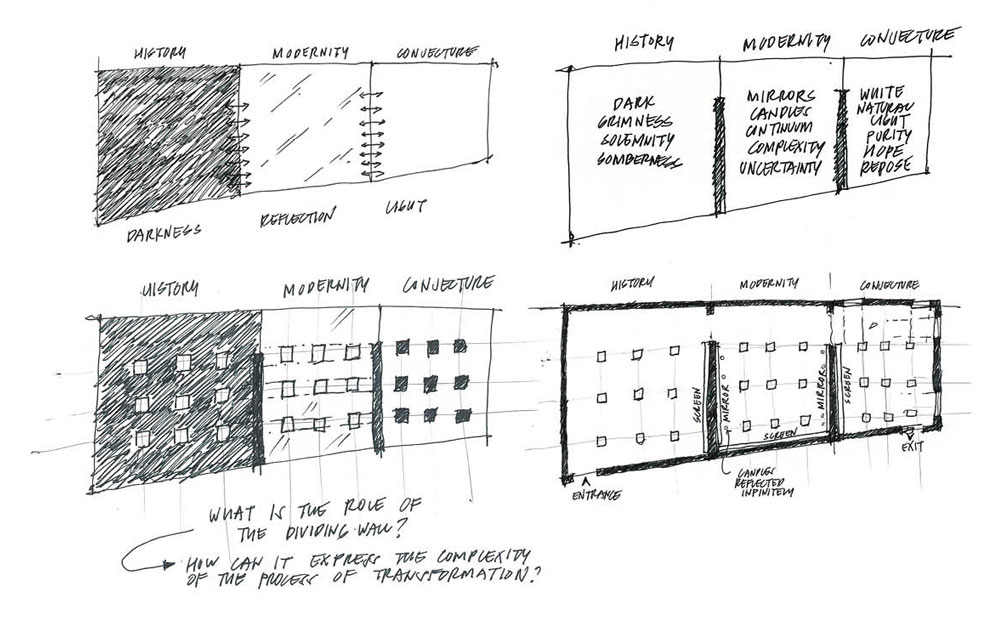 HISTORY
MODERNITY
CONJECTURE
DARKNESS
REFLECTION
LIGHT
HISTORY
MODERNITY
CONJECTURE
DARK
GRIMNESS
SOLEMNITY
SOMBERNESS
MIRRORS
CANDLES
CONTINUUM
COMPLEXITY
UNCERTAINTY
WHITE
NATURAL
LIGHT
PURITY
HOPE
REPOSE
HISTORY
MODERNITY
CONJECTURE
HISTORY
MODERNITY
CONJECTURE
SCREEN
MIRROR
SCREEN
MIRROR
SCREEN
ENTRANCE
CANDLES
REFLECTED
INFINITELY
EXIT
WHAT IS THE ROLE OF
THE DIVIDING WALL?
HOW CAN IT EXPRESS THE COMPLEXITY
OF THE PROCESS OF TRANSFORMATION?